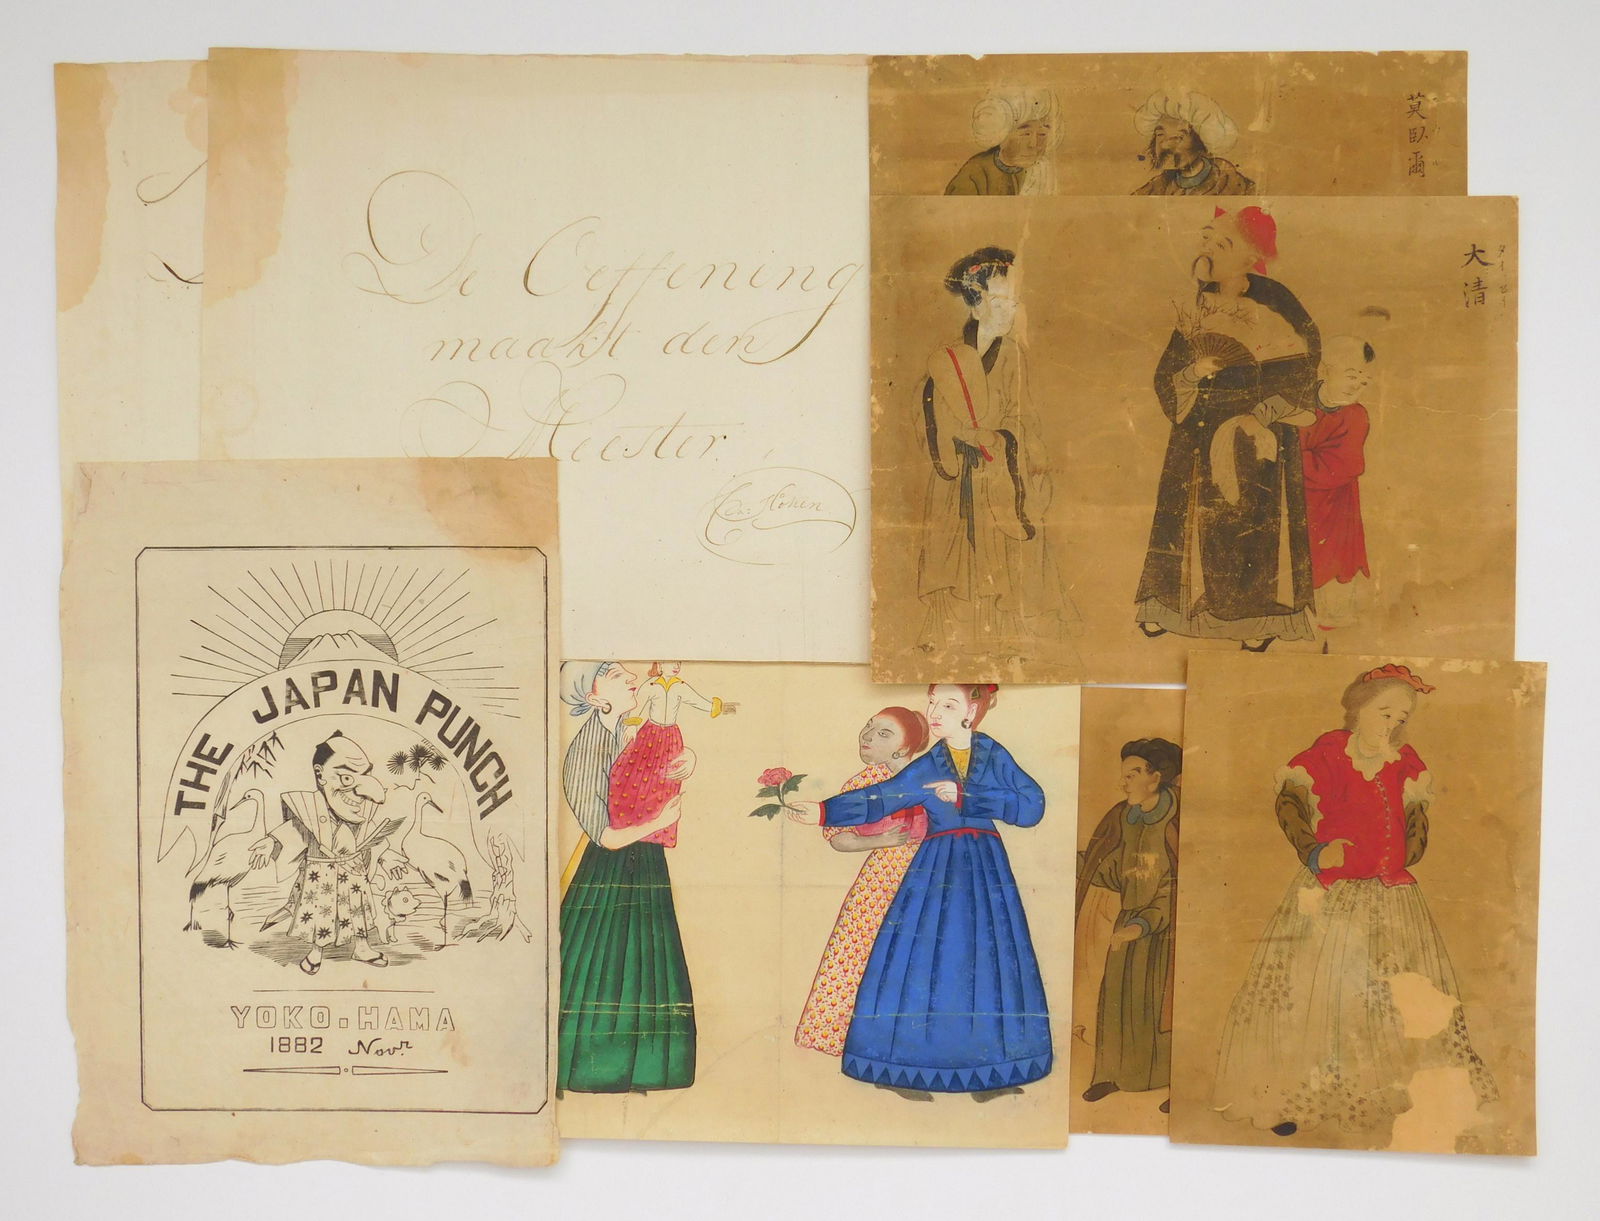 De Oeffening
maakt den
Meester.
THE JAPAN PUNCH
YOKO-HAMA
1882 Novr.
莫卧爾
大清
タイセイ